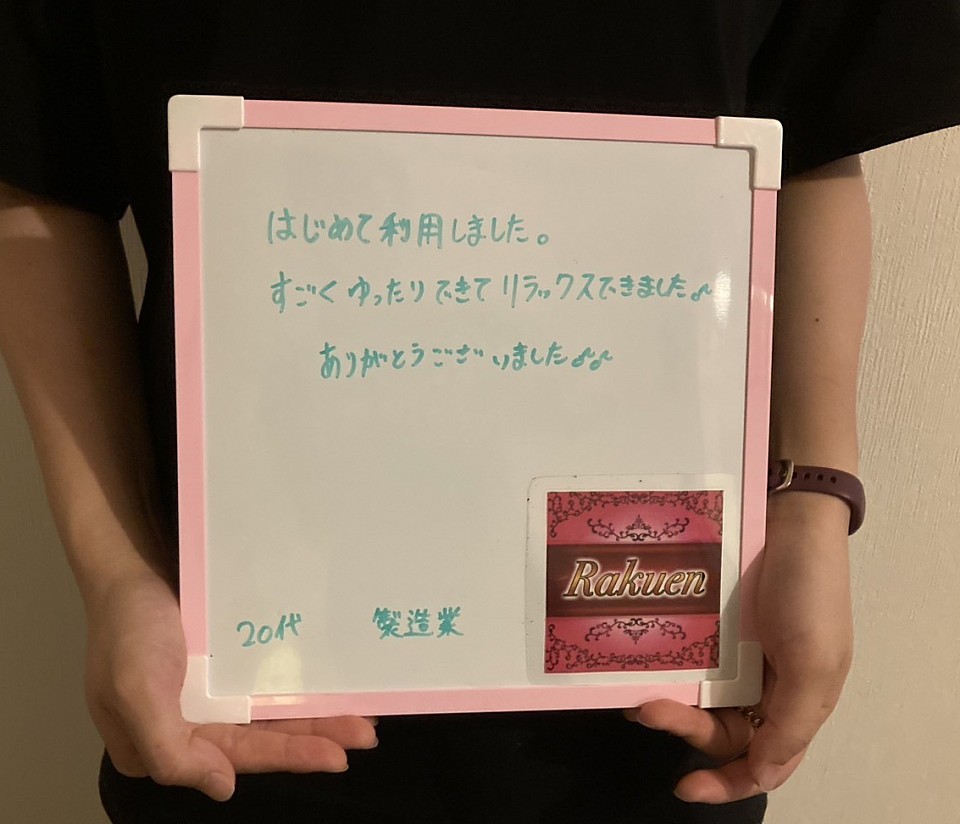 はじめて利用しました。
すごくゆったりできてリラックスできました♪
ありがとうございました♪♪
20代 製造業
Rakuen